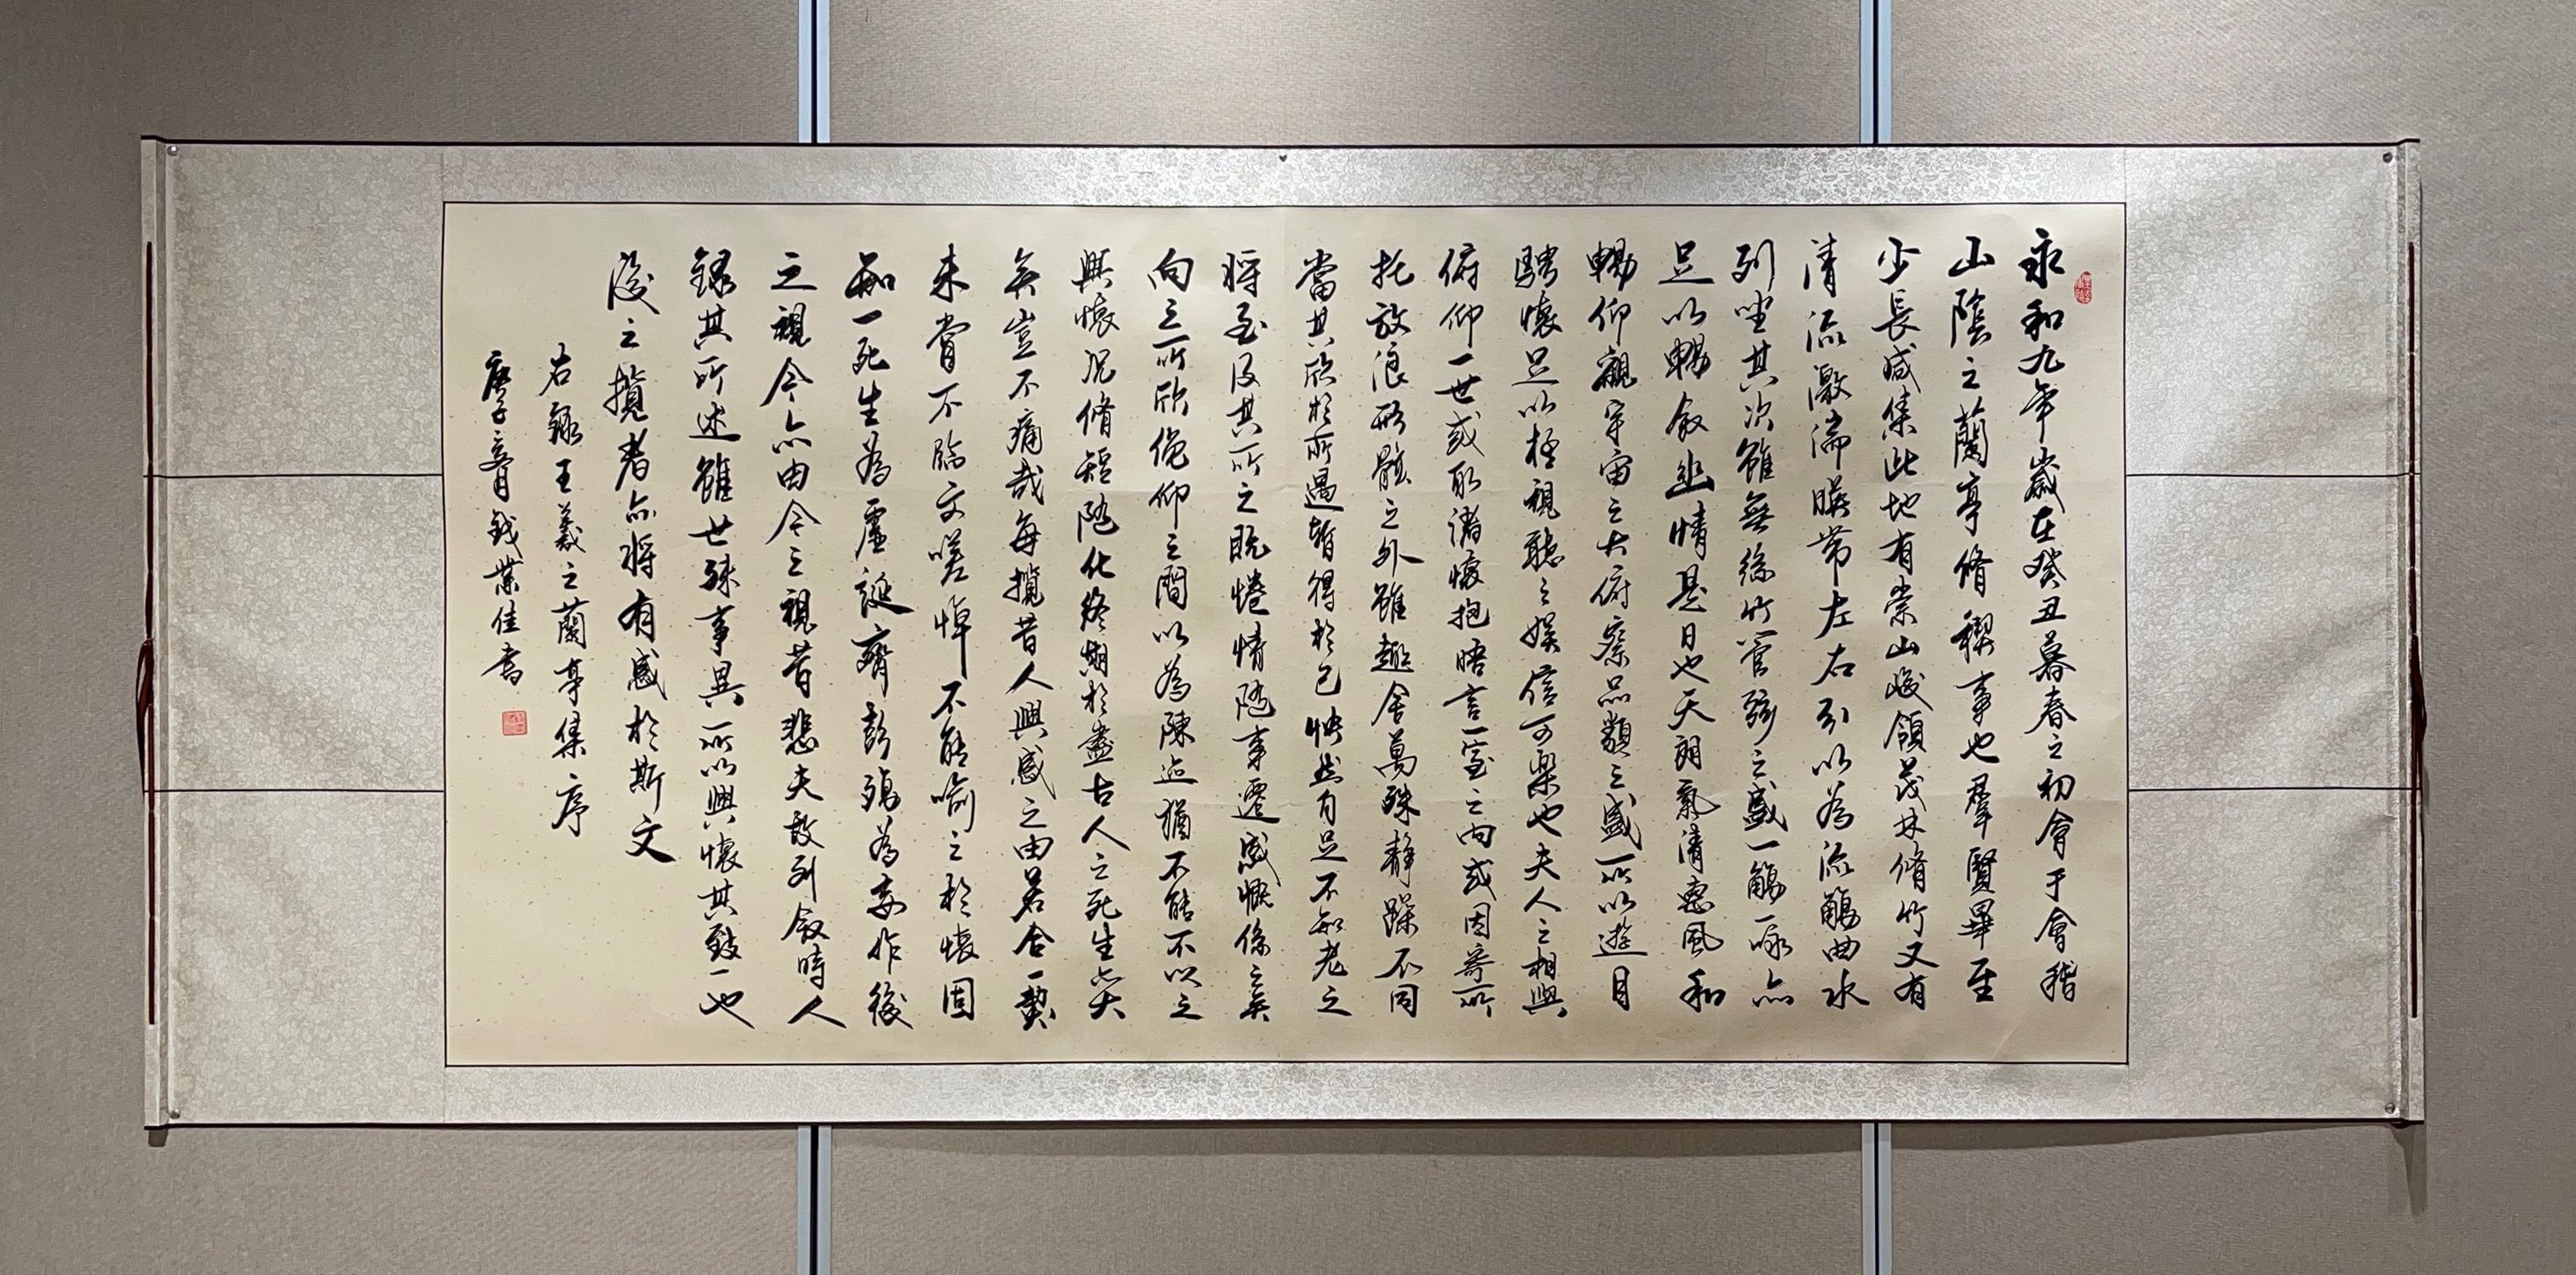 永和九年歲在癸丑暮春之初會于會稽
山陰之蘭亭脩稧事也羣賢畢至
少長咸集此地有崇山峻領茂林脩竹又有
清流激湍暎帶左右引以為流觴曲水
列坐其次雖無絲竹管弦之盛一觴一詠亦
足以暢敘幽情是日也天朗氣清惠風和
暢仰觀宇宙之大俯察品類之盛所以遊目
騁懷足以極視聽之娛信可樂也夫人之相與
俯仰一世或取諸懷抱晤言一室之內或因寄所
托放浪形骸之外雖趣舍萬殊靜躁不同
當其欣於所遇暫得於己怏然自足不知老之
將至及其所之既惓情隨事遷感慨係之矣
向之所欣俛仰之間以為陳迹猶不能不以之
興懷況脩短隨化終期於盡古人之死生亦大
矣豈不痛哉每攬昔人興感之由若合一契
未嘗不臨文嗟悼不能喻之於懷固
知一死生為虛誕齊彭殤為妄作後
之視今亦由今之視昔悲夫故列敘時人
錄其所述雖世殊事異所以興懷其致一也
後之攬者亦將有感於斯文
右錄王羲之蘭亭集序
庚子 月錢業佳書